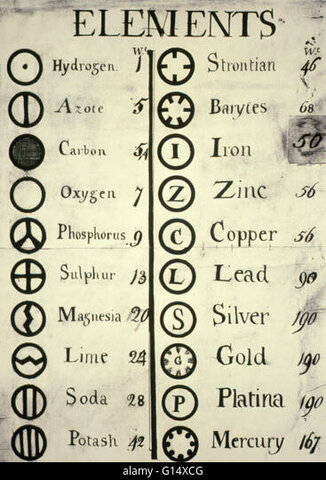 ELEMENTS
Wt
Hydrogen. 1
Azote 5
Carbon 54
Oxygen 7
Phosphorus. 9
Sulphur 13
Magnesia 20
Lime 24
Soda 28
Potash 42
Wt
Strontian 46
Barytes 68
I Iron 50
Z Zinc 56
C Copper 56
L Lead 90
S Silver 190
G Gold 190
P Platina 190
Mercury 167
alamy
alamy
G14XCG
www.alamy.com